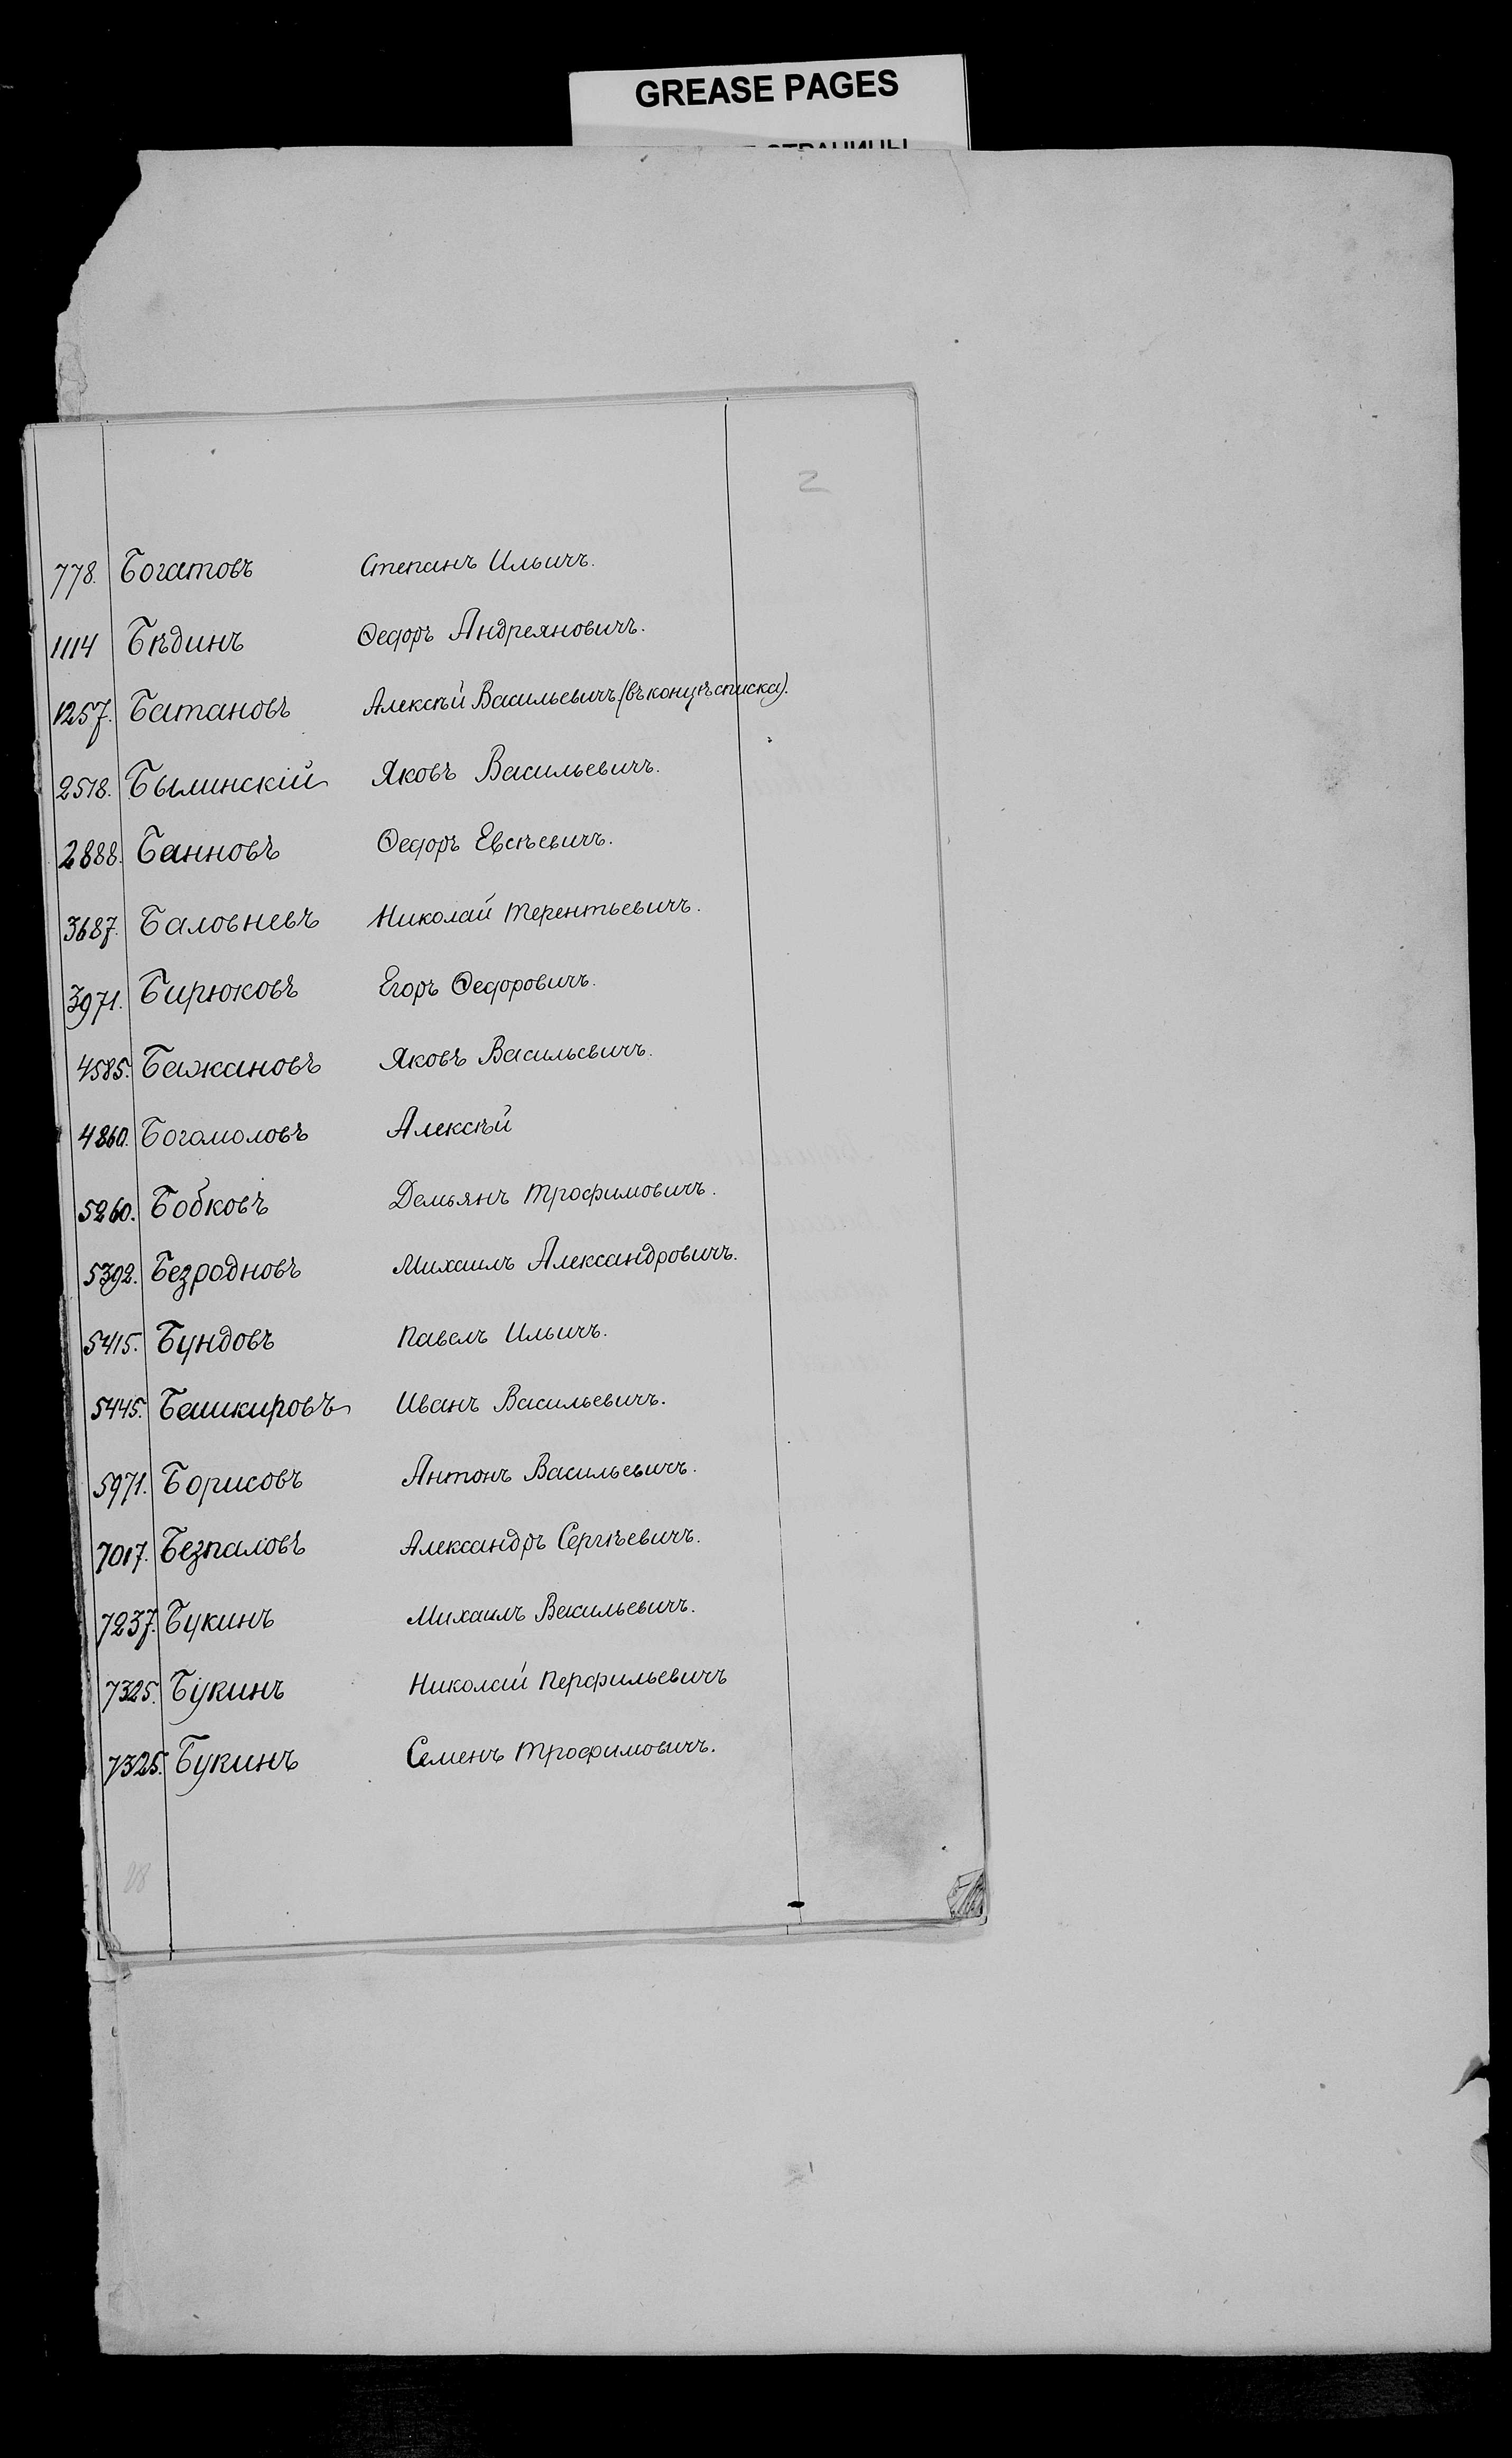 GREASE PAGES
СТРАНИЦЫ
2
778. Богатовъ Степанъ Ильичъ.
1114 Бѣдинъ Ѳедоръ Андреяновичъ.
1257. Батановъ Алексѣй Васильевичъ (въ концѣ списка).
2518. Былинскій Яковъ Васильевичъ.
2888. Банновъ Ѳедоръ Евсѣевичъ.
3687. Баловневъ Николай Терентьевичъ.
3971. Бирюковъ Егоръ Ѳедоровичъ.
4585. Бажановъ Яковъ Васильевичъ.
4860. Богомоловъ Алексѣй
5260. Бобковъ Демьянъ Трофимовичъ.
5392. Безродновъ Михаилъ Александровичъ.
5415. Бундовъ Павелъ Ильичъ.
5445. Башкировъ Иванъ Васильевичъ.
5971. Борисовъ Антонъ Васильевичъ.
7017. Безпаловъ Александръ Сергѣевичъ.
7237. Букинъ Михаилъ Васильевичъ.
7325. Букинъ Николай Перфильевичъ
7325. Букинъ Семенъ Трофимовичъ.